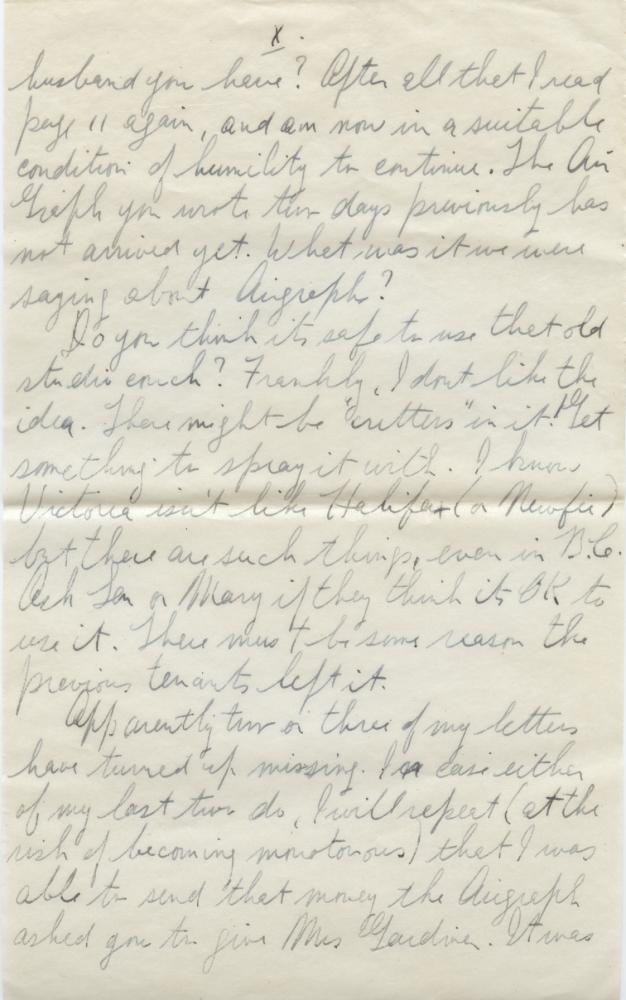 X.
husband you have? After all that I read
page 11 again, and am now in a suitable
condition of humility to continue. The Air
Graph you wrote two days previously has
not arrived yet. What was it we were
saying about Airgraph?
Do you think its safe to use that old
studio couch? Frankly, I dont like the
idea. There might be "critters" in it! Get
something to spray it with. I know
Victoria isn't like Halifax (or Newfie)
but there are such things, even in B.C.
Ask Len or Mary if they think its OK to
use it. There must be some reason the
previous tenants left it.
Apparently two or three of my letters
have turned up missing. In case either
of my last two do, I will repeat (at the
risk of becoming monotonous) that I was
able to send that money the Airgraph
asked you to give Mrs Gardiner. It was